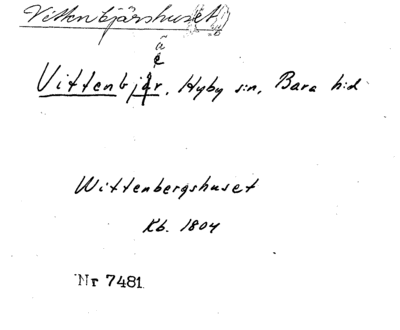 Vittenbjärshuset
ä
e
Vittenbjär, Hyby s:n, Bara h:d
Wittenbergshuset
Kb. 1804
Nr 7481